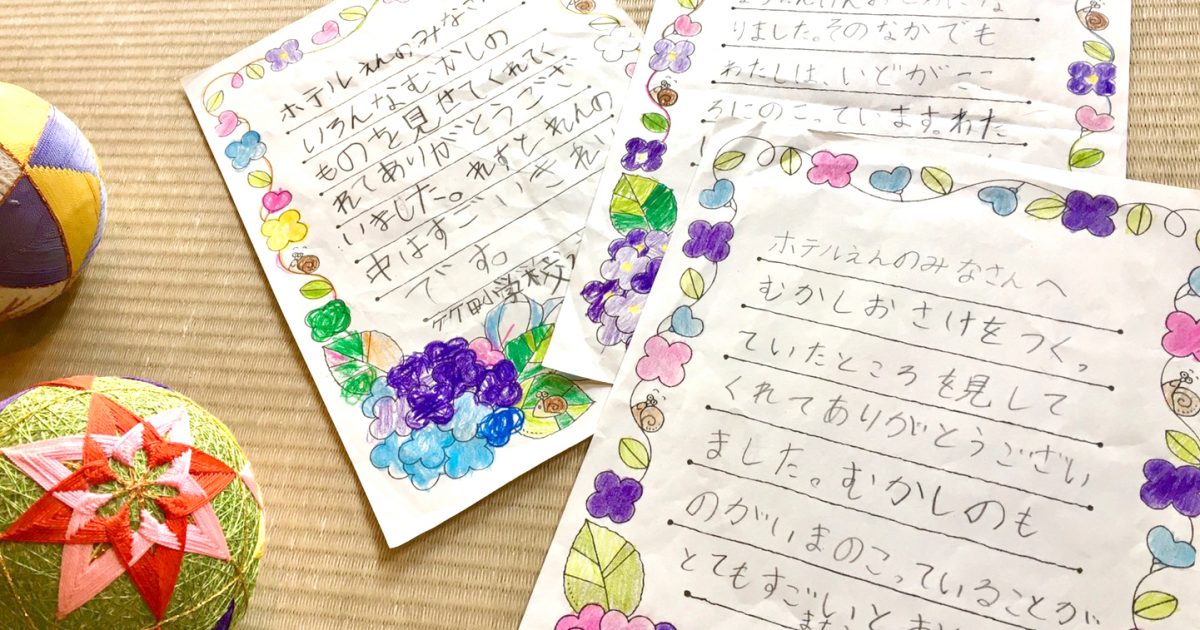 ホテルえんのみなさ
いろんなむかしの
ものを見せてくれてく
れてありがとうござ
いました。れすとれんの
中はすごいきれい
です。
竹田小学校
りました。そのなかでも
わたしは、いどがここ
ろにのこっています。わた
ホテルえんのみなさんへ
むかしおさけをつくっ
ていたところを見して
くれてありがとうござい
ました。むかしのも
のがいまのこっていることが
とてもすごいと
また、